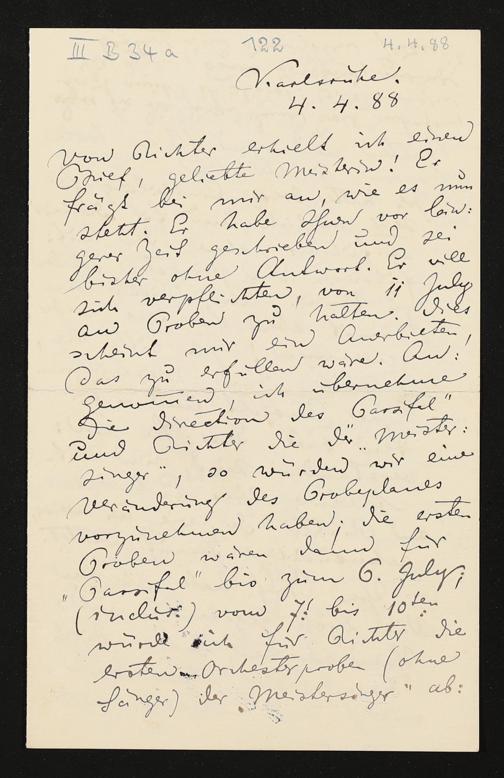 III B 34a 122 4.4.88
Karlsruhe.
4. 4. 88
Von Richter erhielt ich einen
Brief, geliebte Meisterin! Er
frägt bei mir an, wie es nun
steht. Er habe Ihnen vor län:
gerer Zeit geschrieben und sei
bisher ohne Antwort. Er will
sich verpflichten, von 11 July
an Proben zu halten. Dies
scheint mir ein Anerbieten,
das zu erfüllen wäre. An:
genommen, ich übernehme
die Direction des Parsifal"
und Richter die der "Meister:
singer", so würden wir eine
Veränderung des Probeplanes
vorzunehmen haben; die ersten
Proben wären dann für
"Parsifal" bis zum 6. July;
(inclus:) vom 7! bis 10ten
würde ich für Richter die
ersten Orchesterproben (ohne
Sänger) der Meistersinger" ab: